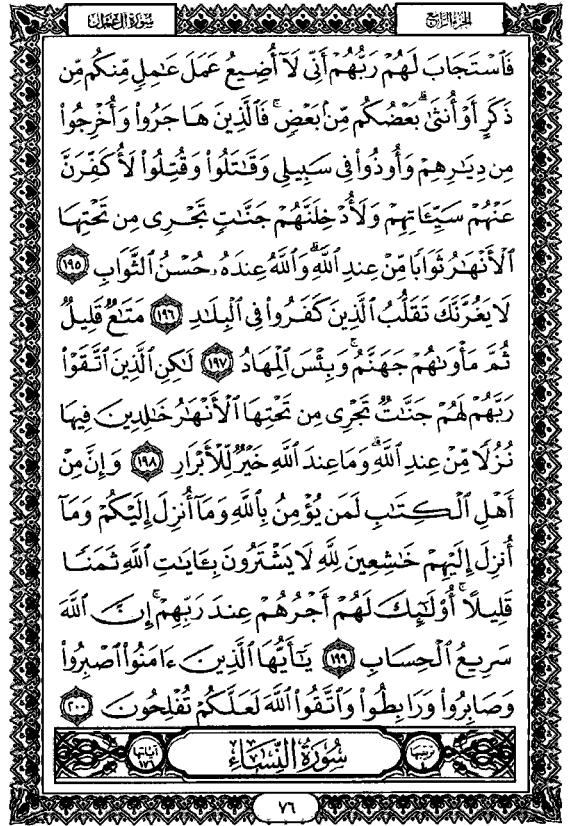 سُورَةُ آلِ عِمْرَانَ
الجُزْءُ الرَّابِعُ
فَٱسْتَجَابَ لَهُمْ رَبُّهُمْ أَنِّى لَآ أُضِيعُ عَمَلَ عَٰمِلٍ مِّنكُم مِّن
ذَكَرٍ أَوْ أُنثَىٰ ۖ بَعْضُكُم مِّنۢ بَعْضٍ ۖ فَٱلَّذِينَ هَاجَرُوا۟ وَأُخْرِجُوا۟
مِن دِيَٰرِهِمْ وَأُوذُوا۟ فِى سَبِيلِى وَقَٰتَلُوا۟ وَقُتِلُوا۟ لَأُكَفِّرَنَّ
عَنْهُمْ سَيِّـَٔاتِهِمْ وَلَأُدْخِلَنَّهُمْ جَنَّٰتٍ تَجْرِى مِن تَحْتِهَا
ٱلْأَنْهَٰرُ ثَوَابًا مِّنْ عِندِ ٱللَّهِ ۗ وَٱللَّهُ عِندَهُۥ حُسْنُ ٱلثَّوَابِ ١٩٥
لَا يَغُرَّنَّكَ تَقَلُّبُ ٱلَّذِينَ كَفَرُوا۟ فِى ٱلْبِلَٰدِ ١٩٦ مَتَٰعٌ قَلِيلٌ
ثُمَّ مَأْوَىٰهُمْ جَهَنَّمُ ۚ وَبِئْسَ ٱلْمِهَادُ ١٩٧ لَٰكِنِ ٱلَّذِينَ ٱتَّقَوْا۟
رَبَّهُمْ لَهُمْ جَنَّٰتٌ تَجْرِى مِن تَحْتِهَا ٱلْأَنْهَٰرُ خَٰلِدِينَ فِيهَا
نُزُلًا مِّنْ عِندِ ٱللَّهِ ۗ وَمَا عِندَ ٱللَّهِ خَيْرٌ لِّلْأَبْرَارِ ١٩٨ وَإِنَّ مِنْ
أَهْلِ ٱلْكِتَٰبِ لَمَن يُؤْمِنُ بِٱللَّهِ وَمَآ أُنزِلَ إِلَيْكُمْ وَمَآ
أُنزِلَ إِلَيْهِمْ خَٰشِعِينَ لِلَّهِ لَا يَشْتَرُونَ بِـَٔايَٰتِ ٱللَّهِ ثَمَنًا
قَلِيلًا ۗ أُو۟لَٰٓئِكَ لَهُمْ أَجْرُهُمْ عِندَ رَبِّهِمْ ۗ إِنَّ ٱللَّهَ
سَرِيعُ ٱلْحِسَابِ ١٩٩ يَٰٓأَيُّهَا ٱلَّذِينَ ءَامَنُوا۟ ٱصْبِرُوا۟
وَصَابِرُوا۟ وَرَابِطُوا۟ وَٱتَّقُوا۟ ٱللَّهَ لَعَلَّكُمْ تُفْلِحُونَ ٢٠٠
ترتيبها ٤
سُورَةُ النِّسَاءِ
آياتها ١٧٦
٧٦